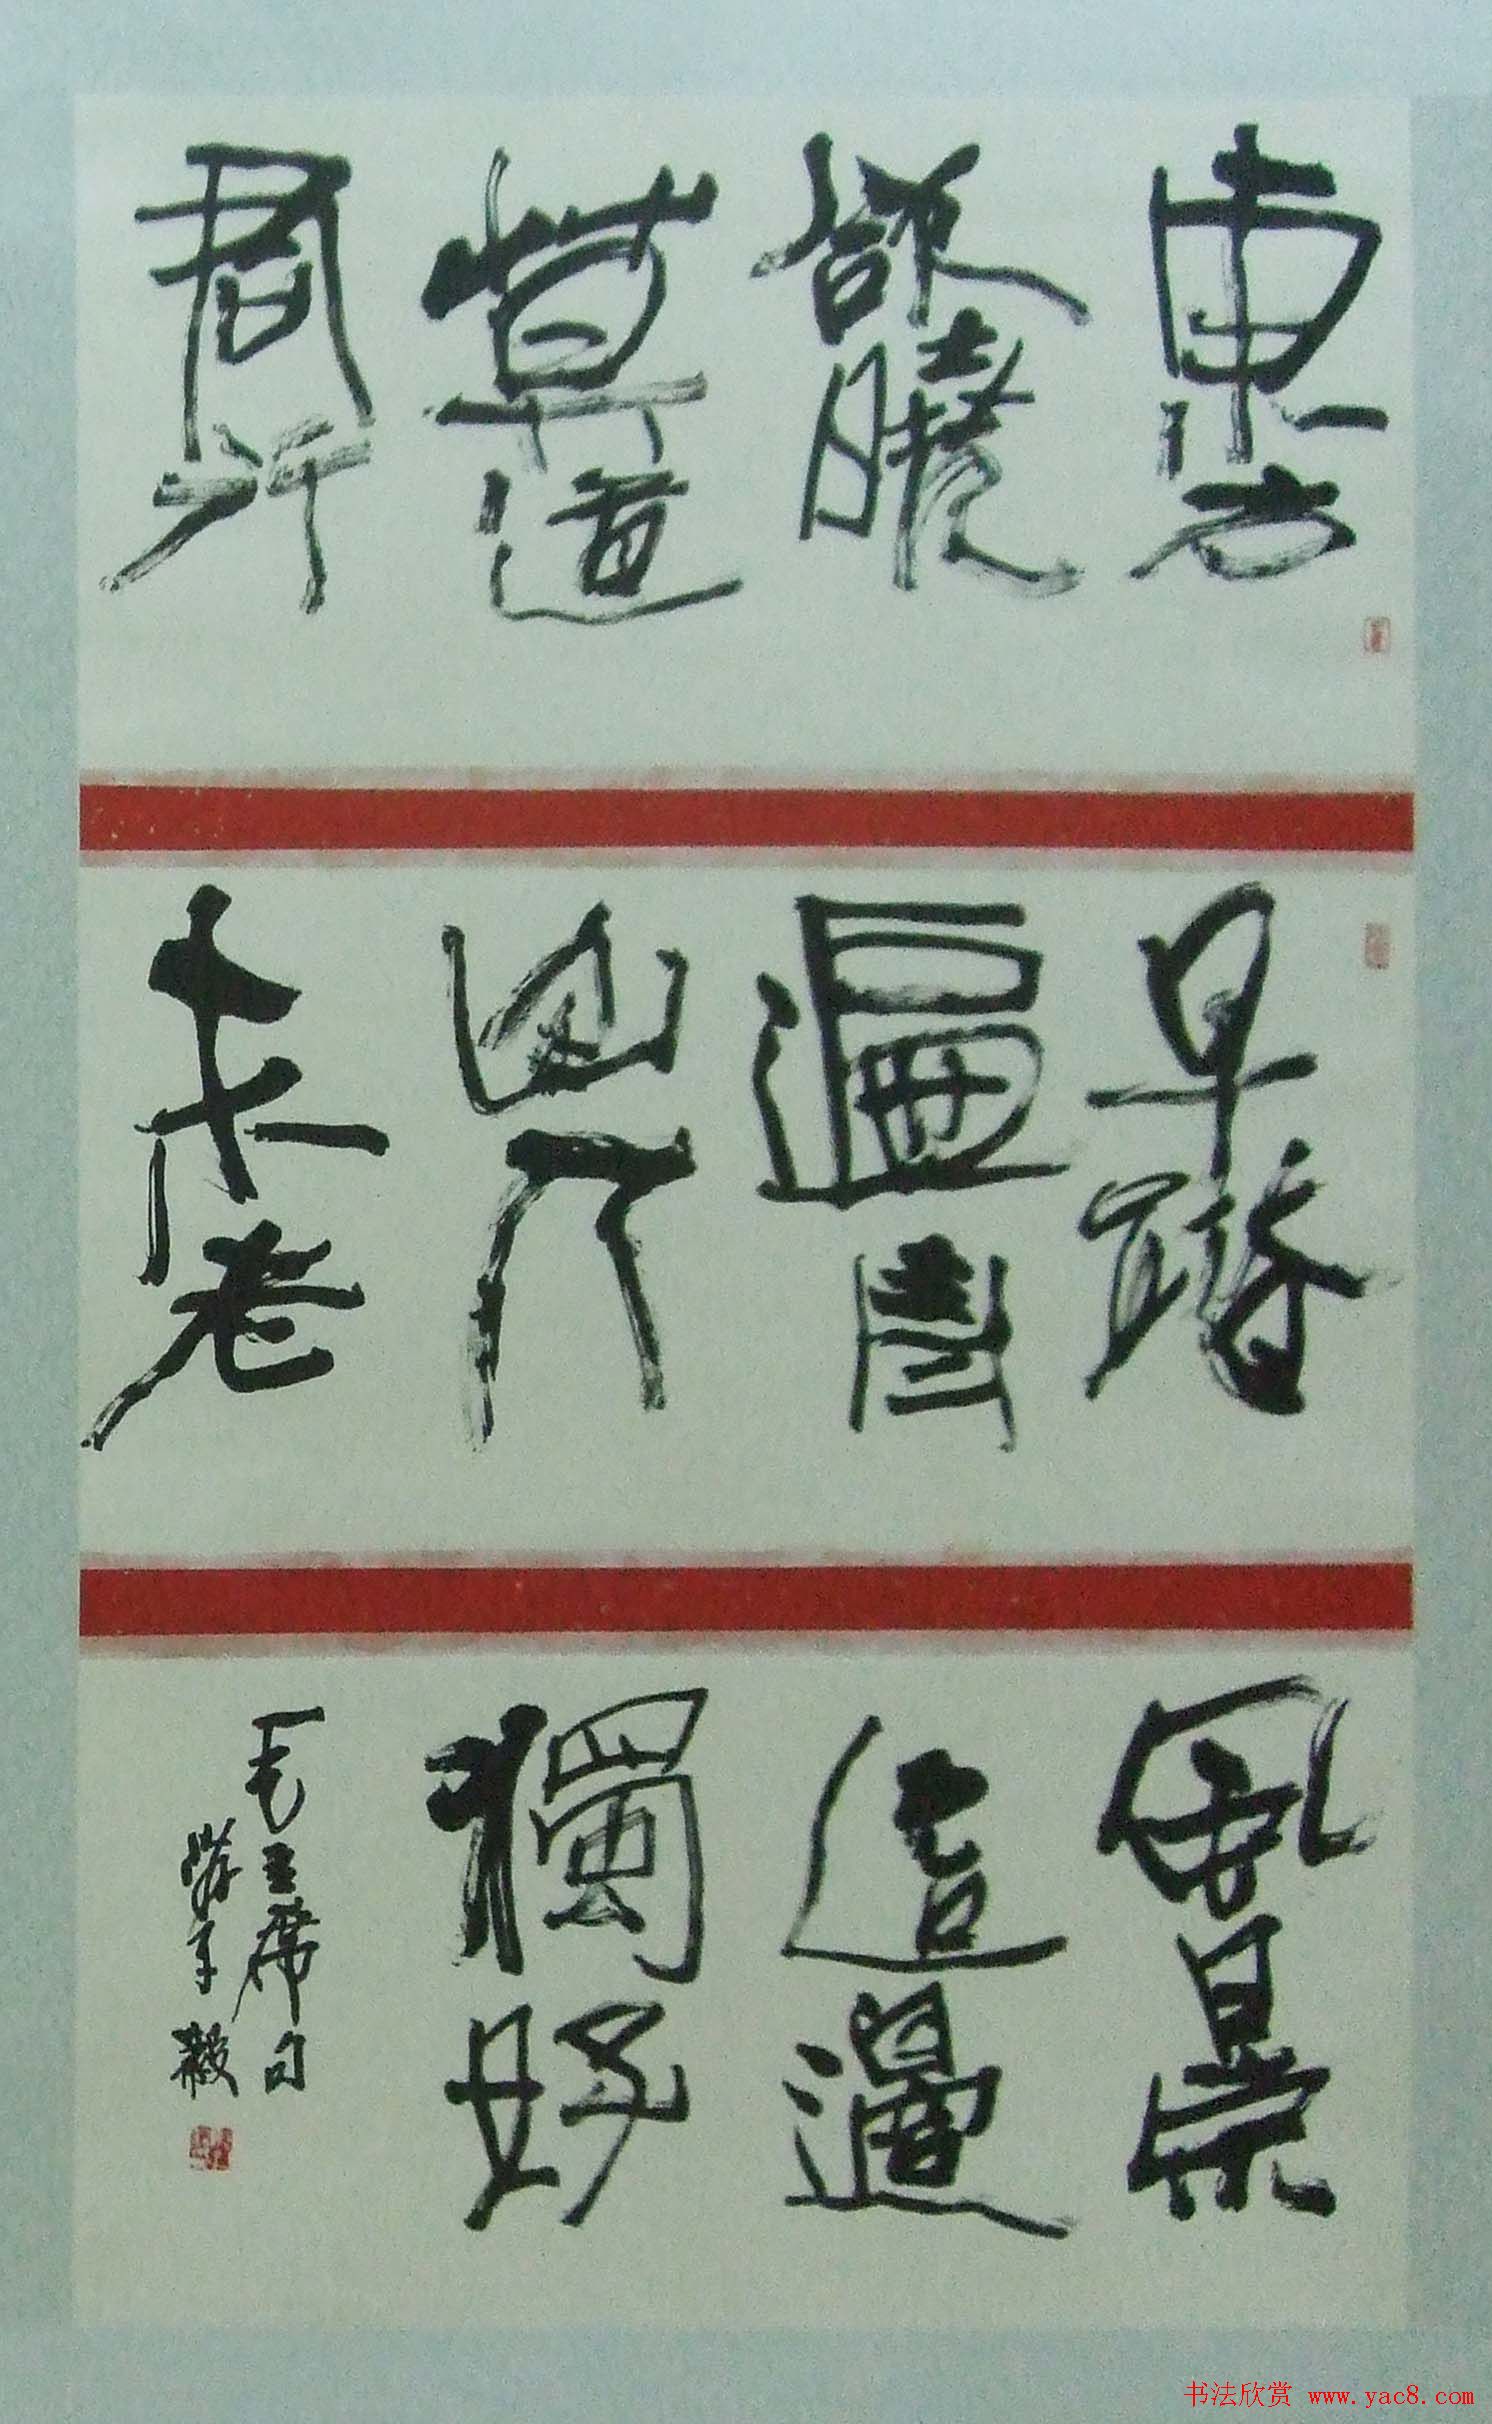 東方
欲曉
莫道
君行
早踏
遍青
山人
未老
風景
這邊
獨好
毛主席句
书法欣赏 www.yac8.com